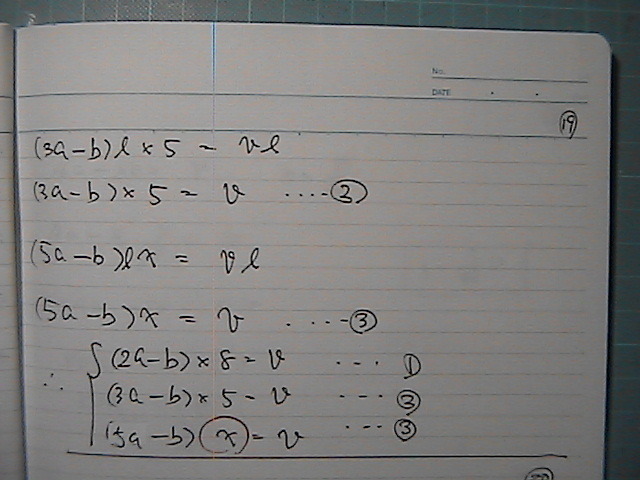 No.
DATE
⑲
(3a-b)l×5=vl
(3a-b)×5=v ....②
(5a-b)lx=vl
(5a-b)x=v ....③
∴ (2a-b)×8=v ... ①
(3a-b)×5=v ... ②
(5a-b)x=v ... ③